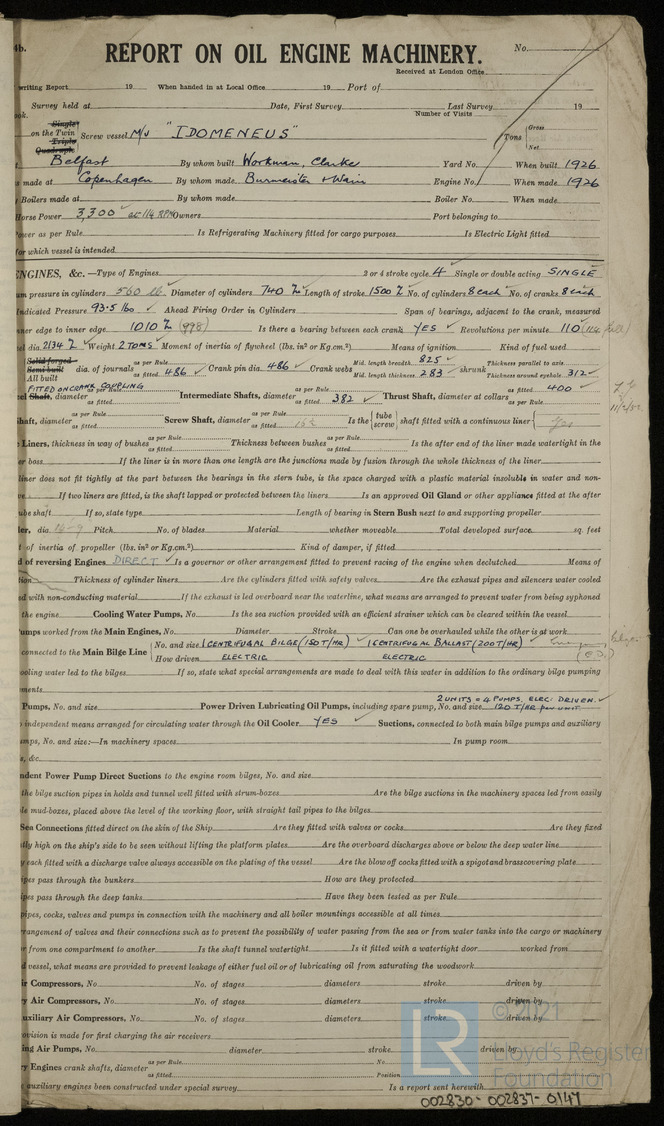 4b.
REPORT ON OIL ENGINE MACHINERY.
No.
Received at London Office
writing Report 19 When handed in at Local Office 19 Port of
Survey held at Date, First Survey Last Survey 19
ook. Number of Visits
Single
on the Twin Screw vessel M/V "IDOMENEUS" Tons Gross
Triple
Quadruple Net
Belfast By whom built Workman, Clarke Yard No. When built 1926
s made at Copenhagen By whom made Burmeister & Wain Engine No. When made 1926
Boilers made at By whom made Boiler No. When made
Horse Power 3,300 at 114 RPM Owners Port belonging to
ower as per Rule Is Refrigerating Machinery fitted for cargo purposes Is Electric Light fitted
for which vessel is intended
ENGINES, &c.—Type of Engines 2 or 4 stroke cycle 4 Single or double acting SINGLE
um pressure in cylinders 560 lb Diameter of cylinders 740 Length of stroke 1500 No. of cylinders 8 each No. of cranks 8 each
Indicated Pressure 93.5 lbs Ahead Firing Order in Cylinders Span of bearings, adjacent to the crank, measured
nner edge to inner edge 1010 (998) Is there a bearing between each crank YES Revolutions per minute 110
el dia. 2134 Weight 2 TONS Moment of inertia of flywheel (lbs. in² or Kg.cm.²) Means of ignition Kind of fuel used
Solid forged
Semi built
All built dia. of journals as per Rule as fitted 486 Crank pin dia. 486 Crank webs Mid. length breadth 825 Mid. length thickness 283 shrunk Thickness parallel to axis Thickness around eyehole 312
FITTED ON CRANK COUPLING
Shaft, diameter as per Rule as fitted Intermediate Shafts, diameter as per Rule as fitted 382 Thrust Shaft, diameter at collars as per Rule as fitted 400
11/2/52
Shaft, diameter as per Rule as fitted Screw Shaft, diameter as per Rule as fitted Is the {tube screw} shaft fitted with a continuous liner { Yes
Liners, thickness in way of bushes as per Rule as fitted Thickness between bushes as per Rule as fitted Is the after end of the liner made watertight in the
er boss If the liner is in more than one length are the junctions made by fusion through the whole thickness of the liner
liner does not fit tightly at the part between the bearings in the stern tube, is the space charged with a plastic material insoluble in water and non-
ve If two liners are fitted, is the shaft lapped or protected between the liners Is an approved Oil Gland or other appliance fitted at the after
ube shaft If so, state type Length of bearing in Stern Bush next to and supporting propeller
ler, dia. Pitch No. of blades Material whether moveable Total developed surface sq. feet
t of inertia of propeller (lbs. in² or Kg.cm.²) Kind of damper, if fitted
d of reversing Engines DIRECT Is a governor or other arrangement fitted to prevent racing of the engine when declutched Means of
tion Thickness of cylinder liners Are the cylinders fitted with safety valves Are the exhaust pipes and silencers water cooled
ed with non-conducting material If the exhaust is led overboard near the waterline, what means are arranged to prevent water from being syphoned
the engine Cooling Water Pumps, No. Is the sea suction provided with an efficient strainer which can be cleared within the vessel
umps worked from the Main Engines, No. Diameter Stroke Can one be overhauled while the other is at work
connected to the Main Bilge Line { No. and size 1 CENTRIFUGAL BILGE (150 T/HR) 1 CENTRIFUGAL BALLAST (200 T/HR)
How driven ELECTRIC ELECTRIC
ooling water led to the bilges If so, state what special arrangements are made to deal with this water in addition to the ordinary bilge pumping
ments
2 UNITS = 4 PUMPS. ELEC. DRIVEN.
Pumps, No. and size Power Driven Lubricating Oil Pumps, including spare pump, No. and size 120 T/HR per unit
o independent means arranged for circulating water through the Oil Cooler YES Suctions, connected to both main bilge pumps and auxiliary
mps, No. and size:—In machinery spaces In pump room
s, &c.
ndent Power Pump Direct Suctions to the engine room bilges, No. and size
the bilge suction pipes in holds and tunnel well fitted with strum-boxes Are the bilge suctions in the machinery spaces led from easily
le mud-boxes, placed above the level of the working floor, with straight tail pipes to the bilges
Sea Connections fitted direct on the skin of the Ship Are they fitted with valves or cocks Are they fixed
tly high on the ship's side to be seen without lifting the platform plates Are the overboard discharges above or below the deep water line
y each fitted with a discharge valve always accessible on the plating of the vessel Are the blow off cocks fitted with a spigot and brass covering plate
ipes pass through the bunkers How are they protected
ipes pass through the deep tanks Have they been tested as per Rule
pipes, cocks, valves and pumps in connection with the machinery and all boiler mountings accessible at all times
rangement of valves and their connections such as to prevent the possibility of water passing from the sea or from water tanks into the cargo or machinery
r from one compartment to another Is the shaft tunnel watertight Is it fitted with a watertight door worked from
d vessel, what means are provided to prevent leakage of either fuel oil or of lubricating oil from saturating the woodwork
ir Compressors, No. No. of stages diameters stroke driven by
y Air Compressors, No. No. of stages diameters stroke driven by
uxiliary Air Compressors, No. No. of stages diameters stroke driven by
ovision is made for first charging the air receivers
ing Air Pumps, No. diameter stroke driven by
ry Engines crank shafts, diameter as per Rule as fitted No. Position
e auxiliary engines been constructed under special survey Is a report sent herewith
LR
© 2021
Lloyd's Register
Foundation
002830-002837-0147